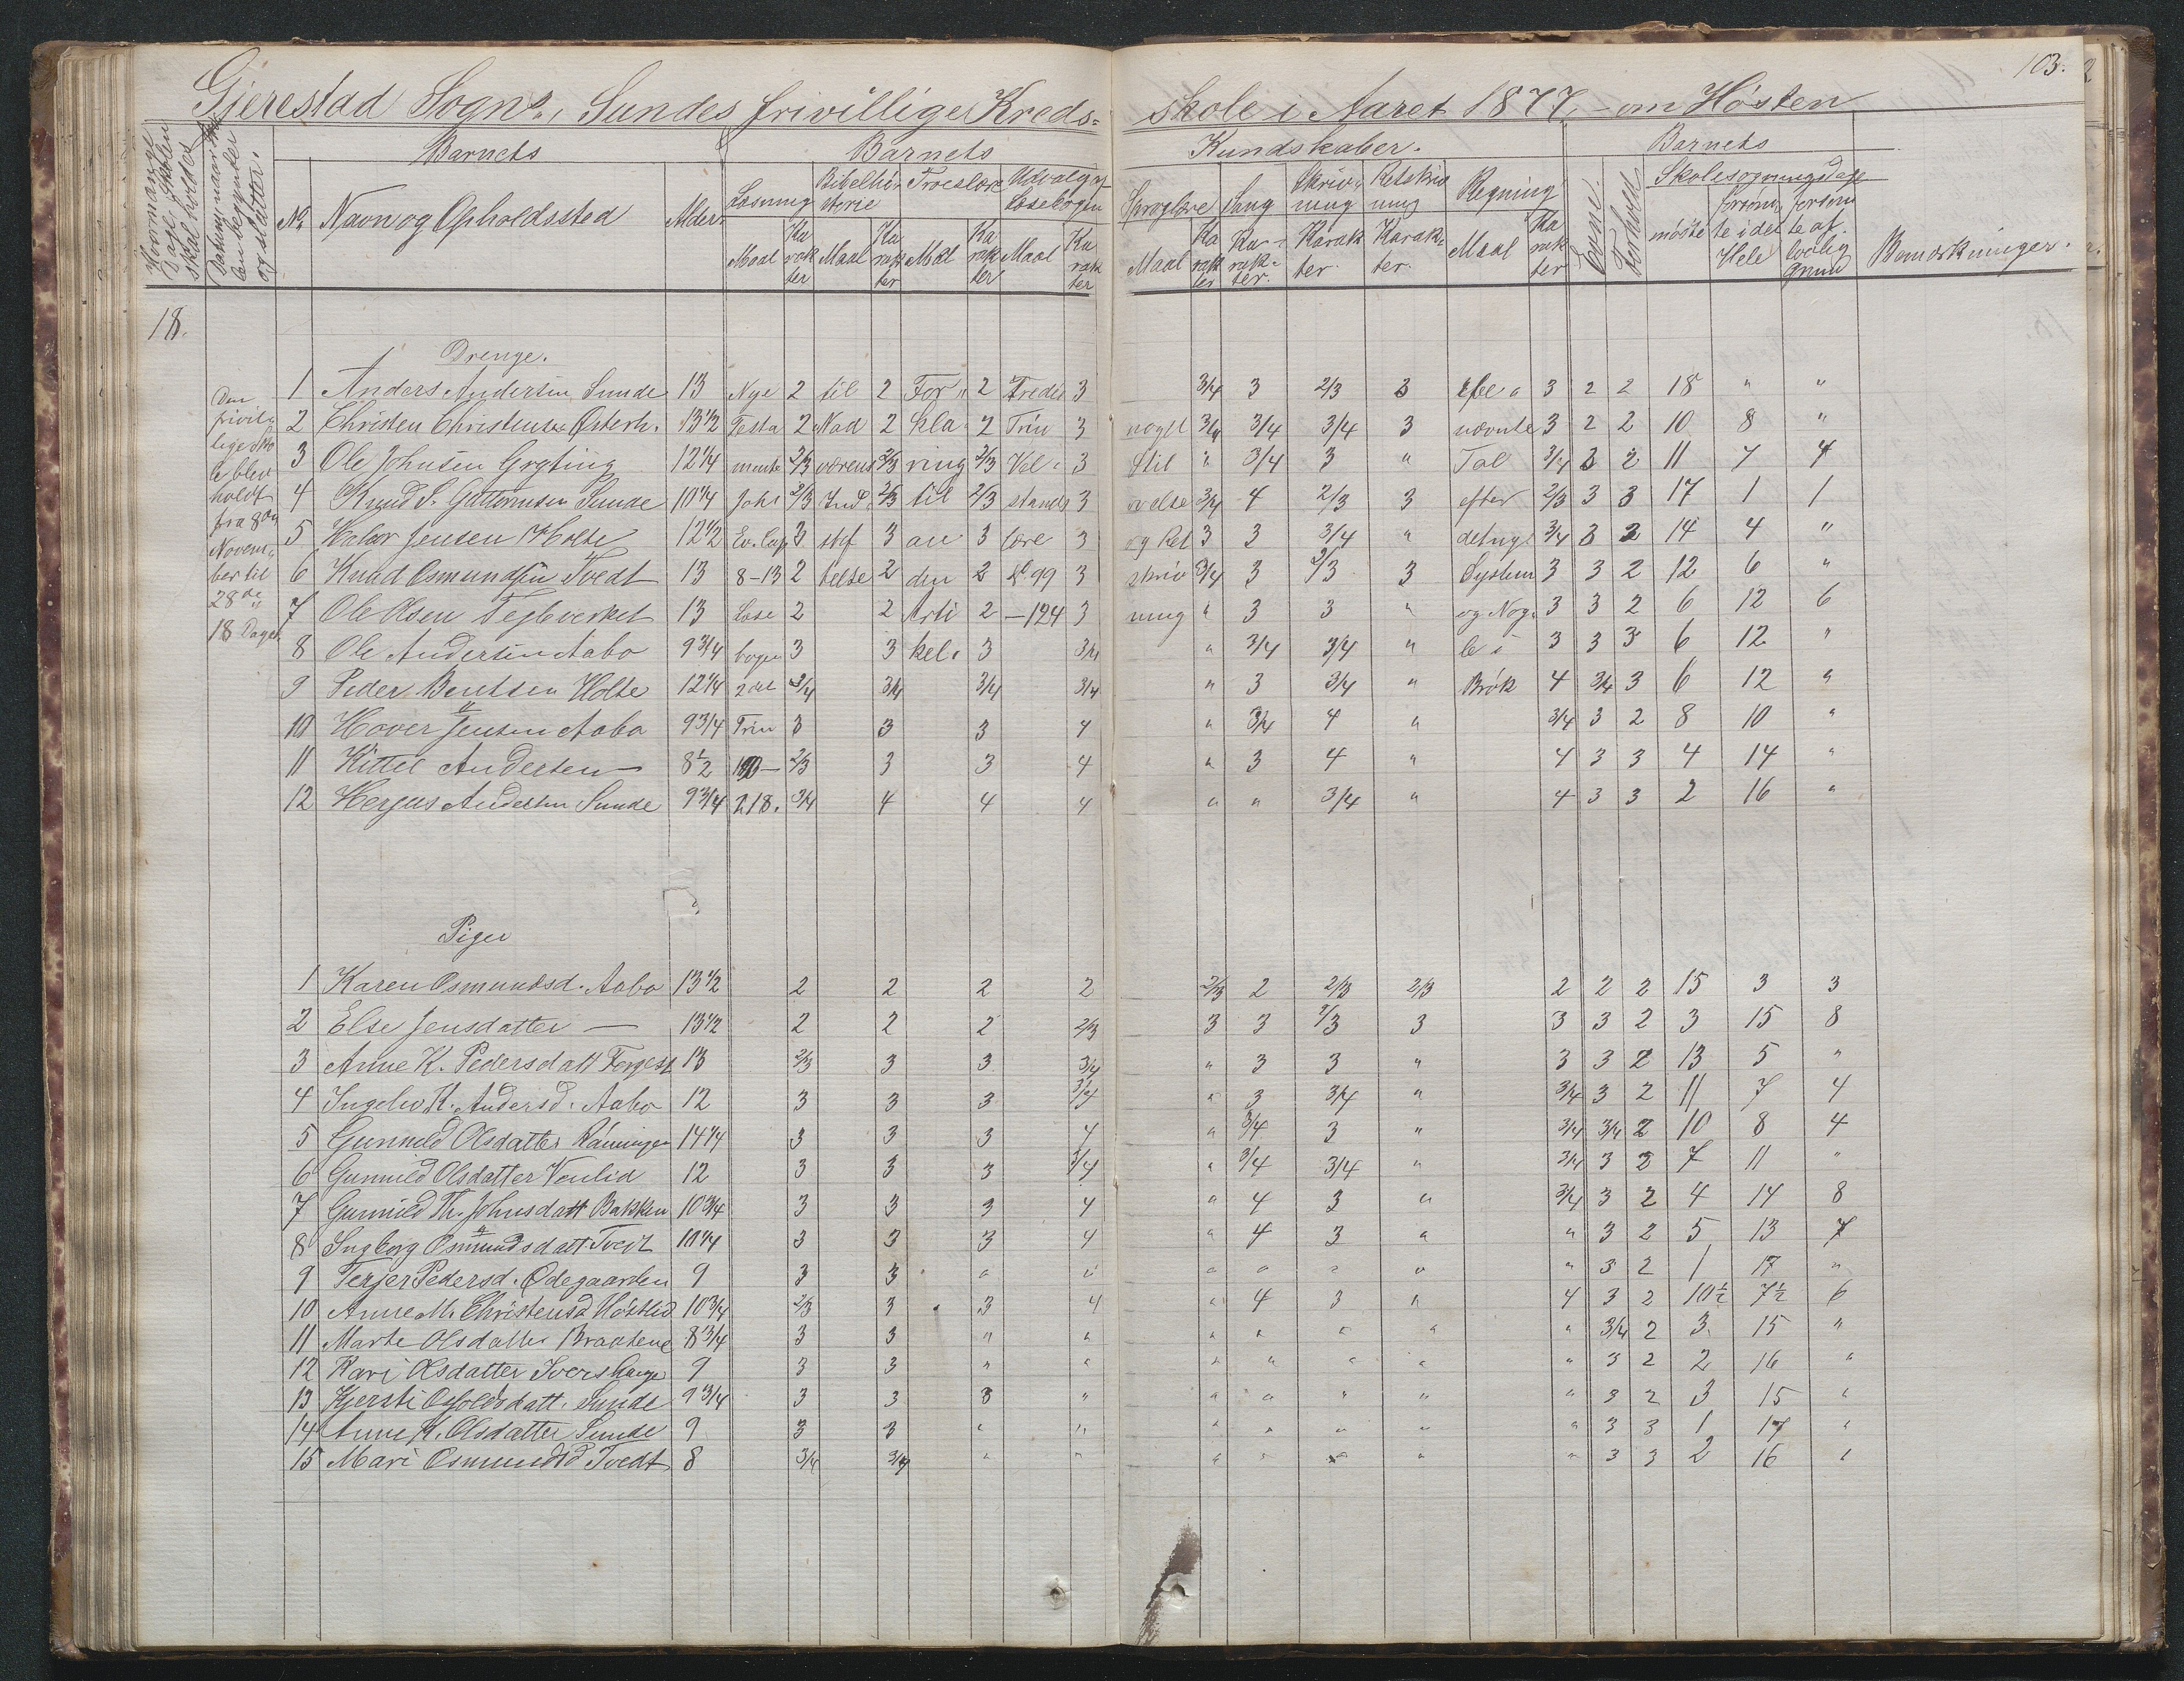 103.
Gjerestad Sogns, Sundes frivillige Kreds= skole i Aaret 1877, om Høsten
Hvormange Dage Skolen skal holdes
Datum, naar Skolen begynder og slutter.
Barnets
Barnets
Kundskaber.
Barnets
No Navn og Opholdssted Alder
Læsning Bibelhistorie Troeslære Udvalg af Læsebogen
Sproglære Sang Skrivning Retskrivning Regning
Evne. Forhold
Skolesøgningsdage
mødte forsømte i det Hele forsømte af lovlig Grund
Bemærkninger.
Maal Karakter Maal Karakter Maal Karakter Maal Karakter
Maal Karakter Karakter. Karakter. Karakter. Maal Karakter
18.
Drenge.
Den frivillige Skole blev holdt fra 8de November til 28de 18 Dage
1 Anders Andersen Sunde 13 Nye 2 til 2 For„ 2 Tredie 3 3/4 3 2/3 3 3 2 2 18 " "
2 Christen Christensen Østerh. 13 1/2 Testa 2 Nad 2 kla„ 2 Trin 3 noget 3/4 3/4 3/4 3 nævnte 3 2 2 10 8 "
3 Ole Johnsen Grgting 12 1/4 mente 2/3 værens 2/3 ring 2/3 Vel„ 3 Stil " 3/4 3 " Tal 3/4 3 2 11 7 4
4 Knud S. Guttormsen Sunde 10 1/4 Joh. 2/3 Ind„ 2/3 til 2/3 stands 3 øvelse 3/4 4 2/3 3 efter 2/3 3 3 17 1 1
5 Halvor Jensen Holte 12 1/2 Ev. Cap. 3 stif 3 an 3 lære 3 og Ret 3 3 3/4 " det nye 3/4 3 2 14 4 "
6 Knud Osmundsen Tvedt 13 8-13 2 telse 2 den 2 99 3 skriv 3/4 3 2/3 3 System 3 3 2 12 6 "
7 Ole Olsen Teglverket 13 Læse 2 2 Arti 2 —124 3 ning " 3 3 " og Nog„ 3 3 2 6 12 6
8 Ole Andersen Aabo 9 3/4 bogen 3 3 kel. 3 3/4 " 3/4 3/4 " le i 3 3 3 6 12 "
9 Peder Bentsen Holte 12 1/4 2det 3/4 3/4 3/4 3/4 " 3 3/4 " Brøk 4 3/4 3 6 12 "
10 Hover Jensen Aabo 9 3/4 Trin 3 3 3 4 " 3/4 4 " 3/4 3 2 8 10 "
11 Kittel Andersen — 8 1/2 2/3 3 3 4 " 3 4 " 4 3 3 4 14 "
12 Hergus Andersen Sunde 9 3/4 218. 3/4 4 4 4 " " 3/4 " 4 3 3 2 16 "
Piger
1 Karen Osmundsd. Aabo 13 1/2 2 2 2 2 2/3 2 2/3 2/3 2 2 2 15 3 3
2 Else Jensdatter — 13 1/2 2 2 2 2/3 3 3 2/3 3 3 3 2 3 15 8
3 Anne K. Pedersdatt 13 2/3 3 3 3/4 " 3 3 " 3 3 2 13 5 "
4 Ingebor K. Andersd. Aabo 12 3 3 3 3/4 " 3 3/4 " 3/4 3 2 11 7 4
5 Gunnild Olsdatter Rønningen 14 1/4 3 3 3 4 " 3/4 3 " 3/4 3/4 2 10 8 4
6 Gunnild Olsdatter Venlid 12 3 3 3 3/4 " 3/4 3/4 " 3/4 3 2 7 11 "
7 Gunnild Th. Johnsdatt Bakken 10 3/4 3 3 3 4 " 4 3 " 3/4 3 2 4 14 8
8 Ingborg Osmundsdatt. Tvedt 10 1/4 3 3 3 4 " 4 3 " " 3 2 5 13 7
9 Terjer Pedersd. Ødegaarden 9 3 3 " " " " " " " 3 2 1 17 "
10 Anne M. Christensd. 10 3/4 2/3 3 3 4 " 4 3 " 4 3 2 10 1/2 7 1/2 6
11 Marte Olsdatter Braatene 8 3/4 3 3 " " " " " " " 3/4 2 3 15 "
12 Kari Olsdatter 9 3 3 " " " " " " " 3 2 2 16 "
13 Kjersti Osfoldsdatt. Sunde 9 3/4 3 3 3 " " " " " " 3 2 3 15 "
14 Anne K. Olsdatter Sunde 9 3 3 " " " " " " " 3 3 1 17 "
15 Mari Osmundsd Tvedt 8 3/4 3/4 " " " " " " " 3 3 2 16 "